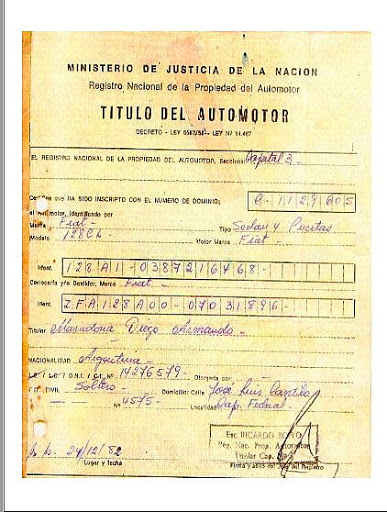 MINISTERIO DE JUSTICIA DE LA NACION
Registro Nacional de la Propiedad del Automotor
TITULO DEL AUTOMOTOR
DECRETO - LEY 6582/58 - LEY Nº 14.467
EL REGISTRO NACIONAL DE LA PROPIEDAD DEL AUTOMOTOR, Seccional Capital 3 -
Certifica que HA SIDO INSCRIPTO CON EL NUMERO DE DOMINIO: C-1129605
el automotor, identificado por
Marca Fiat - Tipo Sedan 4 Puertas
Modelo 128CL - Motor Marca Fiat -
Ident. 128A1-038-7216768-
Carrocería y/o Bastidor, Marca Fiat -
Ident. ZFA128A00-07031896-
Titular Maradona Diego Armando -
NACIONALIDAD Argentina -
L.E./ L.C./ D.N.I. / C.I. Nº 14276579 - Otorgada por
EST. CIVIL Soltero - Domicilio: Calle José Luis Cantilo
Nº 4575 - Localidad Cap. Federal -
Esc. RICARDO
Reg. Nac. Prop. Automotor
Titular Cap. Nº 3
24/12/82
Lugar y fecha
Firma y sello del Jefe del Registro